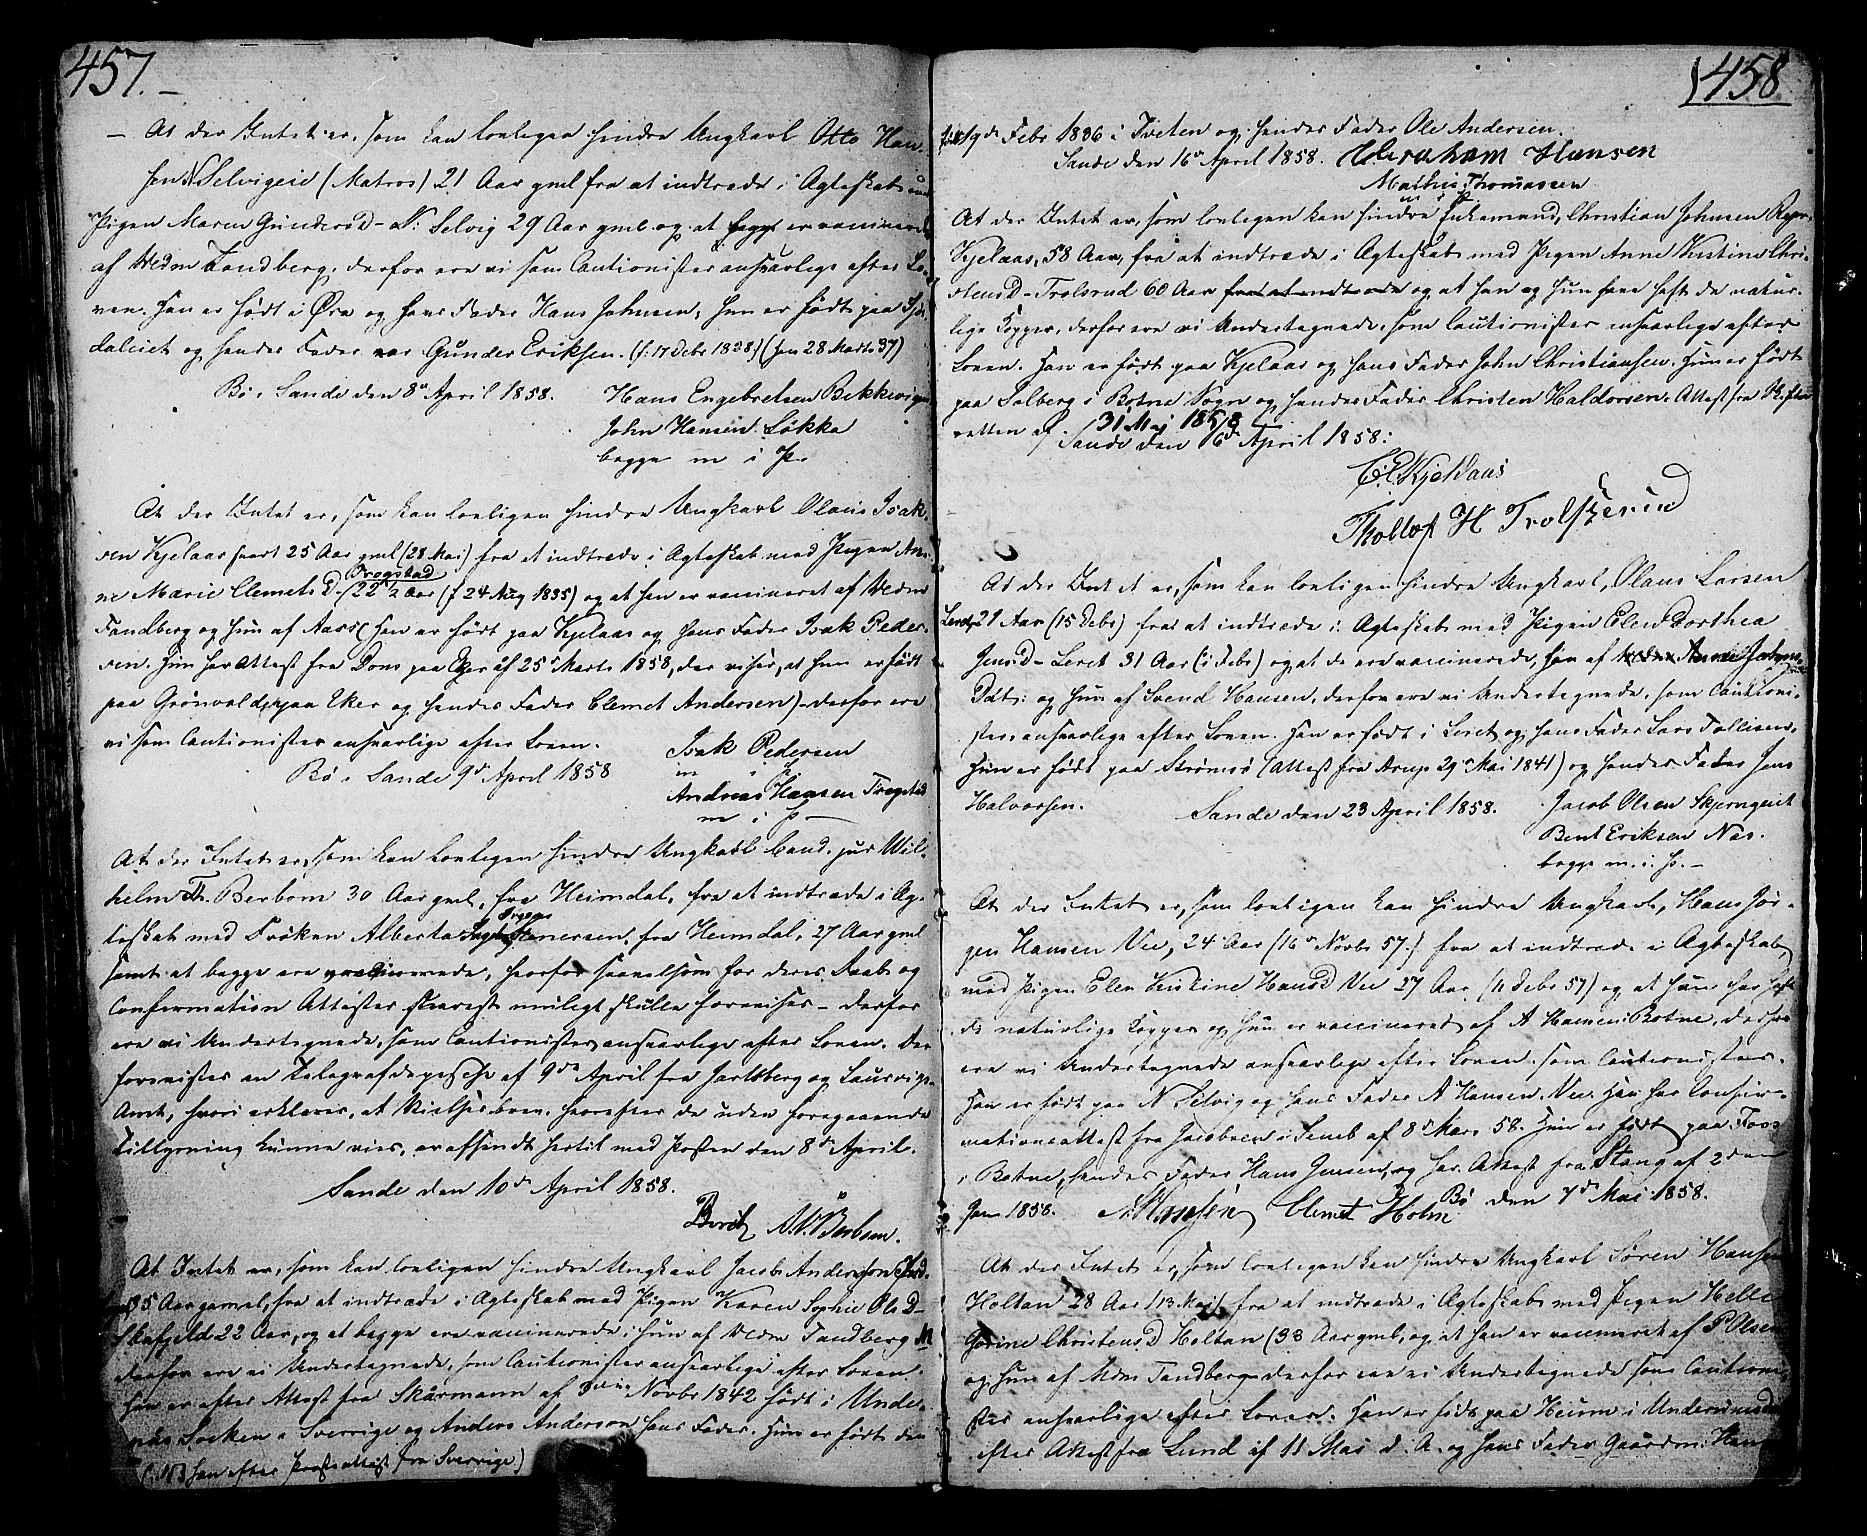 457.
— At der Intet er, som kan lovligen hindre Ungkarl Otto Han-
sen Selvigeie (Matros) 21 Aar gml fra at indtræde i Ægteskab med
Pigen Maren GundersD – N: Selvig 29 Aar gml og at begge er vaccinerede
af Mdm Tandberg, derfor ere vi som Cautionister ansvarlige efter Lo-
ven. Han er født i Øra og hans Fader Hans Johnsen, hun er født paa
daleiet og hendes Fader var Gunder Eriksen. (f. 17 Debr 1828) (han 28 Marts 37)
Bø i Sande den 8de April 1858. Hans Engebretsen Bekkevigen
John Hansen Løkka
begge m i P.
At der Intet er, som kan lovligen hindre Ungkarl Olaus Isak-
sen Kjelaas snart 25 Aar gml (28 Mai) fra at indtræde i Ægteskab med Pigen An-
ne Marie ClemetsD Trogstad 22½ Aar (f 24 Aug 1835) og at han er vaccineret af Mdm
Tandberg og hun af Aass (han er født paa Kjelaas og hans Fader Isak Peder-
sen. Hun har Attest fra paa Eger af 25de Marts 1858, der viser, at hun er født
paa Grönvold paa Eker og hendes Fader Clemet Andersen) – derfor ere
vi som Cautionister ansvarlige efter Loven.
Bø i Sande 9de April 1858 Isak Pedersen
m i P
Andreas Hansen Trogstad
m i P —
At der Intet er, som kan lovligen hindre Ungkarl Cand. jur Wil-
helm Th. Berbom 30 Aar gml, fra Heimdal, fra at indtræde i Æg-
teskab med Frøken Alberta fra Heimdal, 27 Aar gml
samt at begge ere vaccinerede, hvorfor saavelsom for deres Daab og
Confirmation Attester snarest muligt skulle forevises – derfor
ere vi Undertegnede, som Cautionister ansvarlige efter Loven. Der
forevistes en Telegrafdepesche af 9de April fra Jarlsberg og Laurvigs
Amt, hvori erklæres, at Vielsesbrev, hvorefter de uden foregaaende
Tillysning kunne vies, er afsendt hertil med Posten den 8de April.
Sande den 10de April 1858.
At Intet er, som kan lovligen hindre Ungkarl Jacob Anderson
35 Aar gamel, fra at indtræde i Ægteskab med Pigen Karen Sophie OlsD –
Skafjeld 22 Aar, og at begge ere vaccinerede, hun af Mdm Tandberg
derfor ere vi Undertegnede, som Cautionister ansvarlige efter Loven.
Han er efter Attest fra Skårmann af Novbr 1842 født i Unde-
näs Socken i Sverrige og Anders Anderson hans Fader. Hun er født den
han efter Præsteattest fra Sverrige)
458
19de Febr 1836 i Tveten og hendes Fader Ole Andersen.
Sande den 16de April 1858. Abraham Hansen
Mathis Thomassen
m i P
At der Intet er, som lovligen kan hindre Enkemand, Christian Johnsen
Kjelaas, 58 Aar, fra at indtræde i Ægteskab med Pigen Anne Kirstine Chri-
stensD – Trolsrud 60 Aar fra at indtræde og at han og hun have haft de natur-
lige Kopper, derfor ere vi Undertegnede, som Cautionister ansvarlige efter
Loven. Han er født paa Kjelaas og hans Fader John Christiansen. Hun er født
paa Solberg i Botne Sogn og hendes Fader Christen Haldorsen. Attest fra Skifte-
retten af 31 Maj 1858
Sande den 16de April 1858.
C. C. Kjeldaas
Thollof H Trolsrud
At der Intet er, som kan lovligen hindre Ungkarl, Olaus Larsen
Leret 21 Aar (15 Debr) fra at indtræde i Ægteskab med Pigen Elen Dorthea
JensD – Leret 31 Aar (i Febr) og at de ere vaccinerede, han af Anne
og hun af Svend Hansen, derfor ere vi Undertegnede, som Cautioni-
ster ansvarlige efter Loven. Han er født i Leret og hans Fader Lars Tollisen.
Hun er født paa Strømsø (Attest fra Arup 29de Mai 1841) og hendes Fader Jens
Halvorsen. Sande den 23 April 1858. Jacob Olsen Skjerngeiet
Bent Eriksen Næs.
begge m. i. P. —
At der Intet er, som lovligen kan hindre Ungkarl, Hans Jør-
gen Hansen Vee, 24 Aar (16de Novbr 57) fra at indtræde i Ægteskab
med Pigen Elen Kirstine HansD Vee 27 Aar (11 Debr 57) og at han har haft
de naturlige Kopper og hun er vaccineret af A Hansen Botne, derfor
ere vi Undertegnede ansvarlige efter Loven som Cautionister.
Han er født paa N Selvig og hans Fader A Hansen Vee. Han har Confir-
mationsattest fra Jacobsen i Seueb af 8de Mars 58. Hun er født paa
i Botne, hendes Fader Hans Jensen, og har Attest fra Stang af 2den
Jan 1858. AHansen Clemet Holm Bø den 7de Mai 1858.
At der Intet er, som lovligen kan hindre Ungkarl Søren Hansen
Holtan 28 Aar (13 Mai) fra at indtræde i Ægteskab med Pigen Helle
Gurine ChristensD Holtan (33 Aar gml, og at han er vaccineret af P Olsen
og hun af Mdm Tandberg derfor ere vi Undertegnede som Cautioni-
ster ansvarlige efter Loven. Han er født paa Heum i
efter Attest fra Lund af 11 Mai d. A. og hans Fader Gaardm: Hans